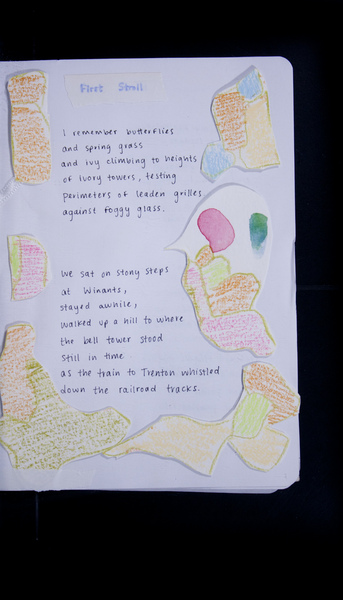 First Stroll
I remember butterflies
and spring grass
and ivy climbing to heights
of ivory towers, testing
perimeters of leaden grilles
against foggy glass.
We sat on stony steps
at Winants,
stayed awhile,
walked up a hill to where
the bell tower stood
still in time
as the train to Trenton whistled
down the railroad tracks.